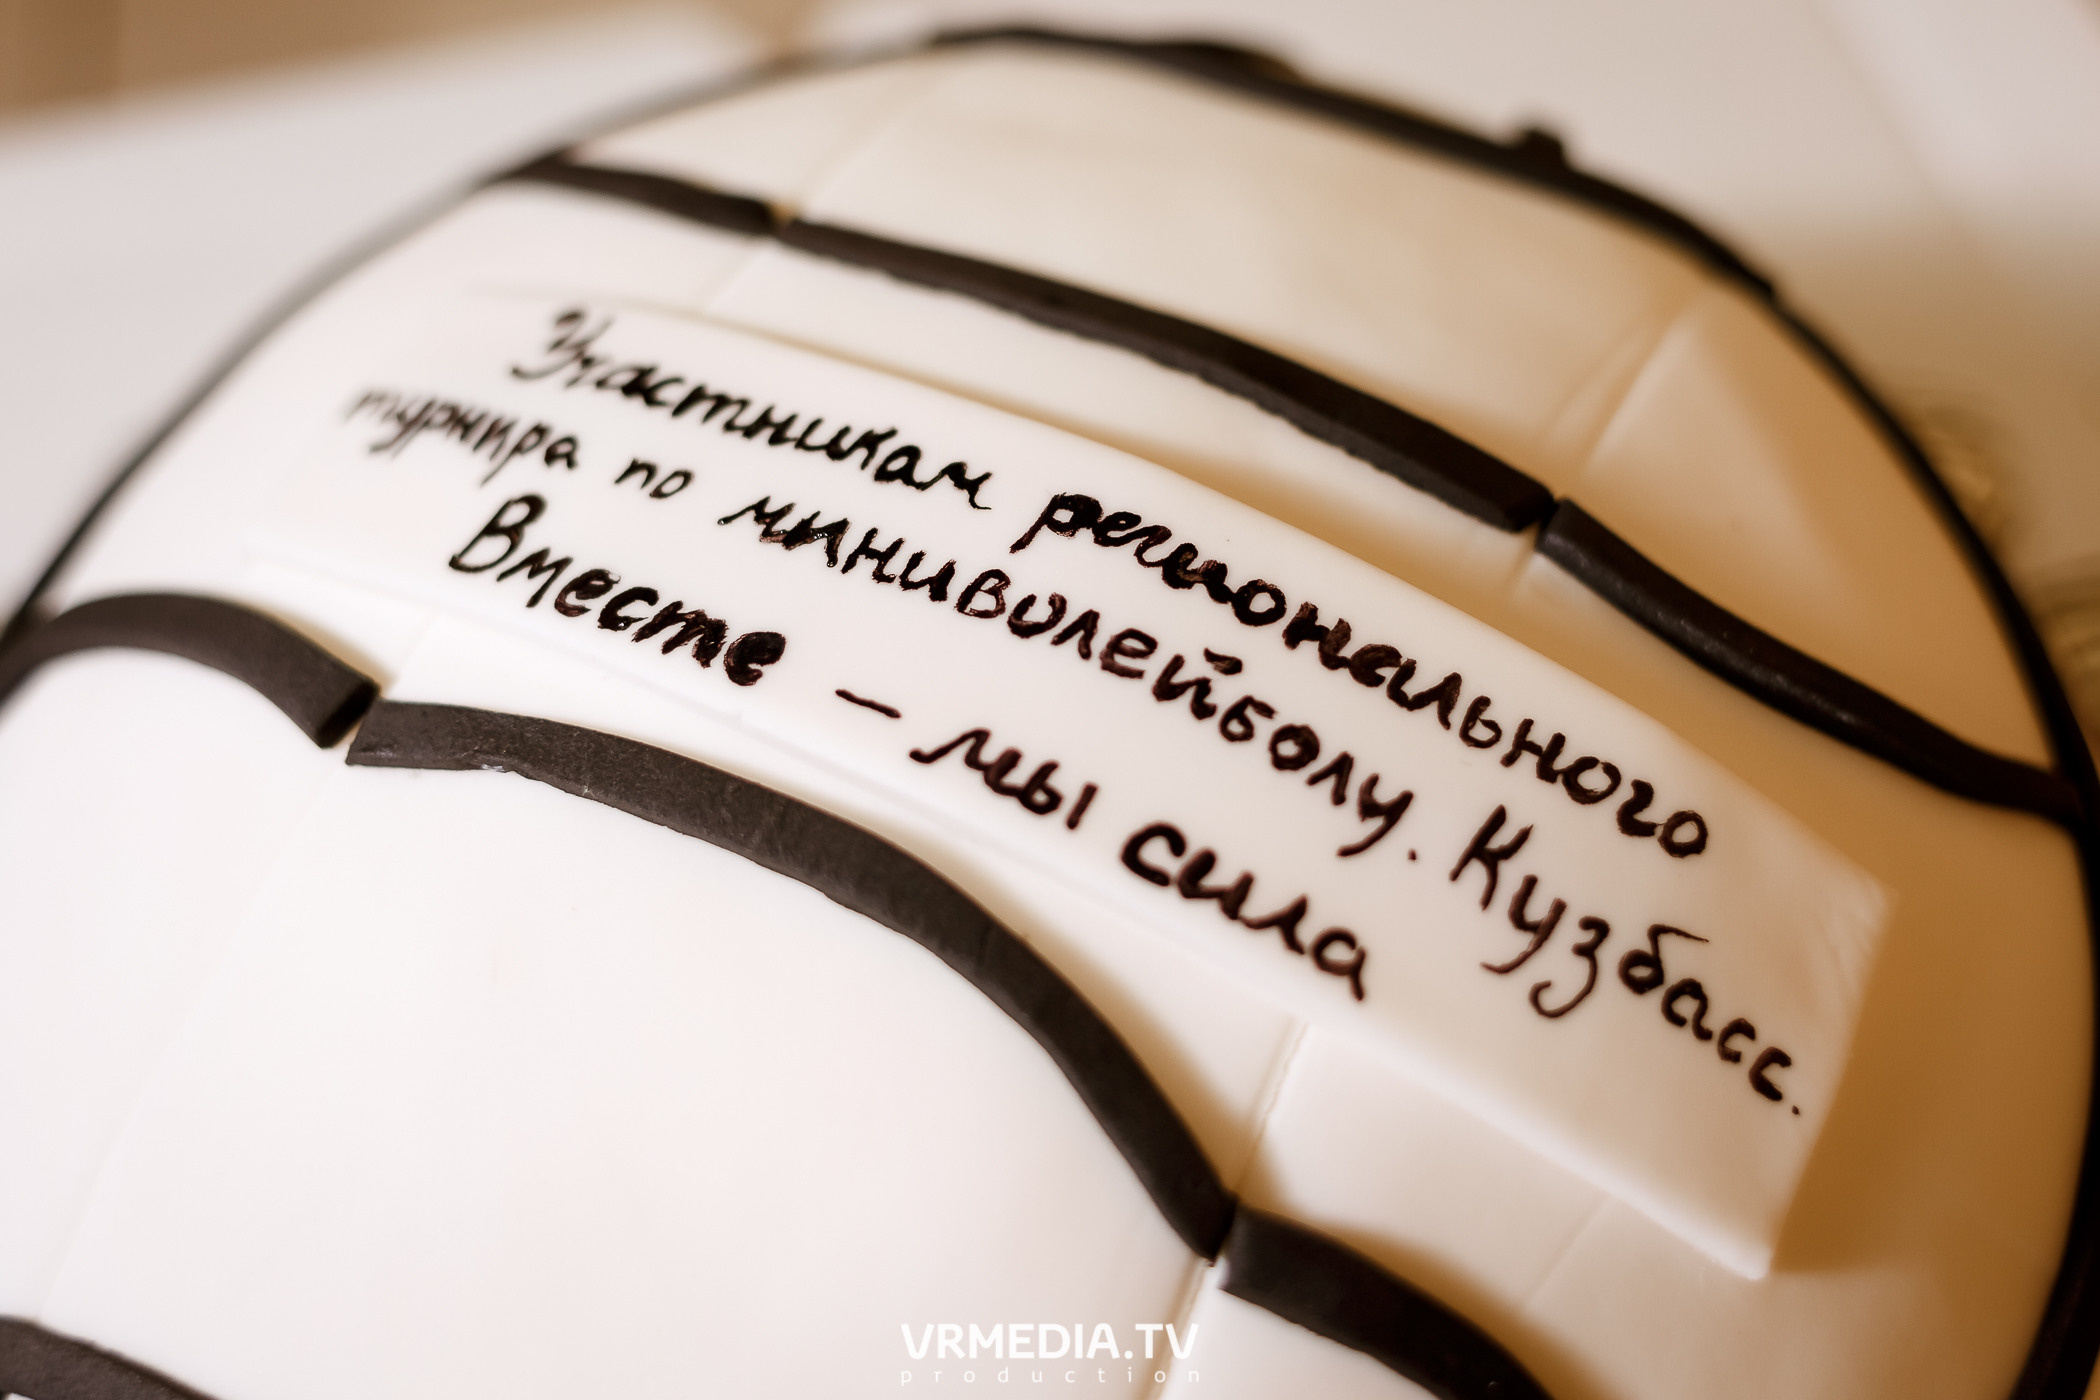 Участникам регионального
турнира по миниволейболу. Кузбасс.
Вместе – мы сила
VRMEDIA.TV
production